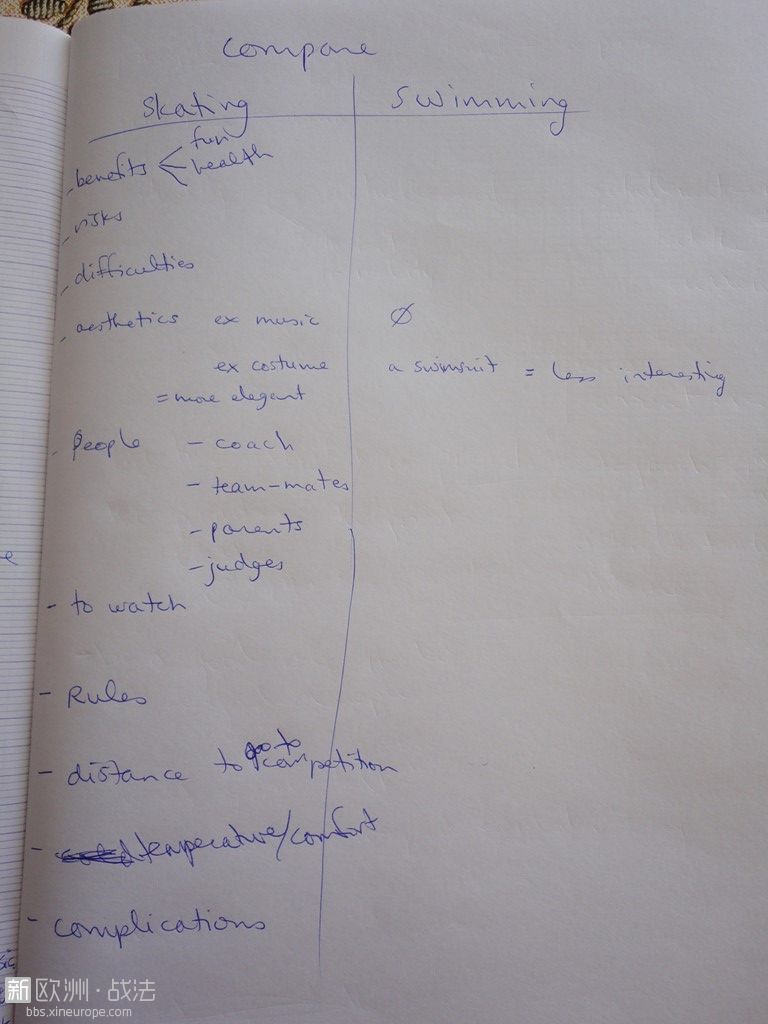 compare
skating
swimming
- benefits < fun
health
- risks
- difficulties
- aesthetics ex music
Ø
ex costume
a swimsuit = less interesting
= more elegant
- People - coach
- team-mates
- parents
- judges
- to watch
- Rules
- distance to go to competition
- temperature/comfort
- complications
新欧洲·战法
bbs.xineurope.com